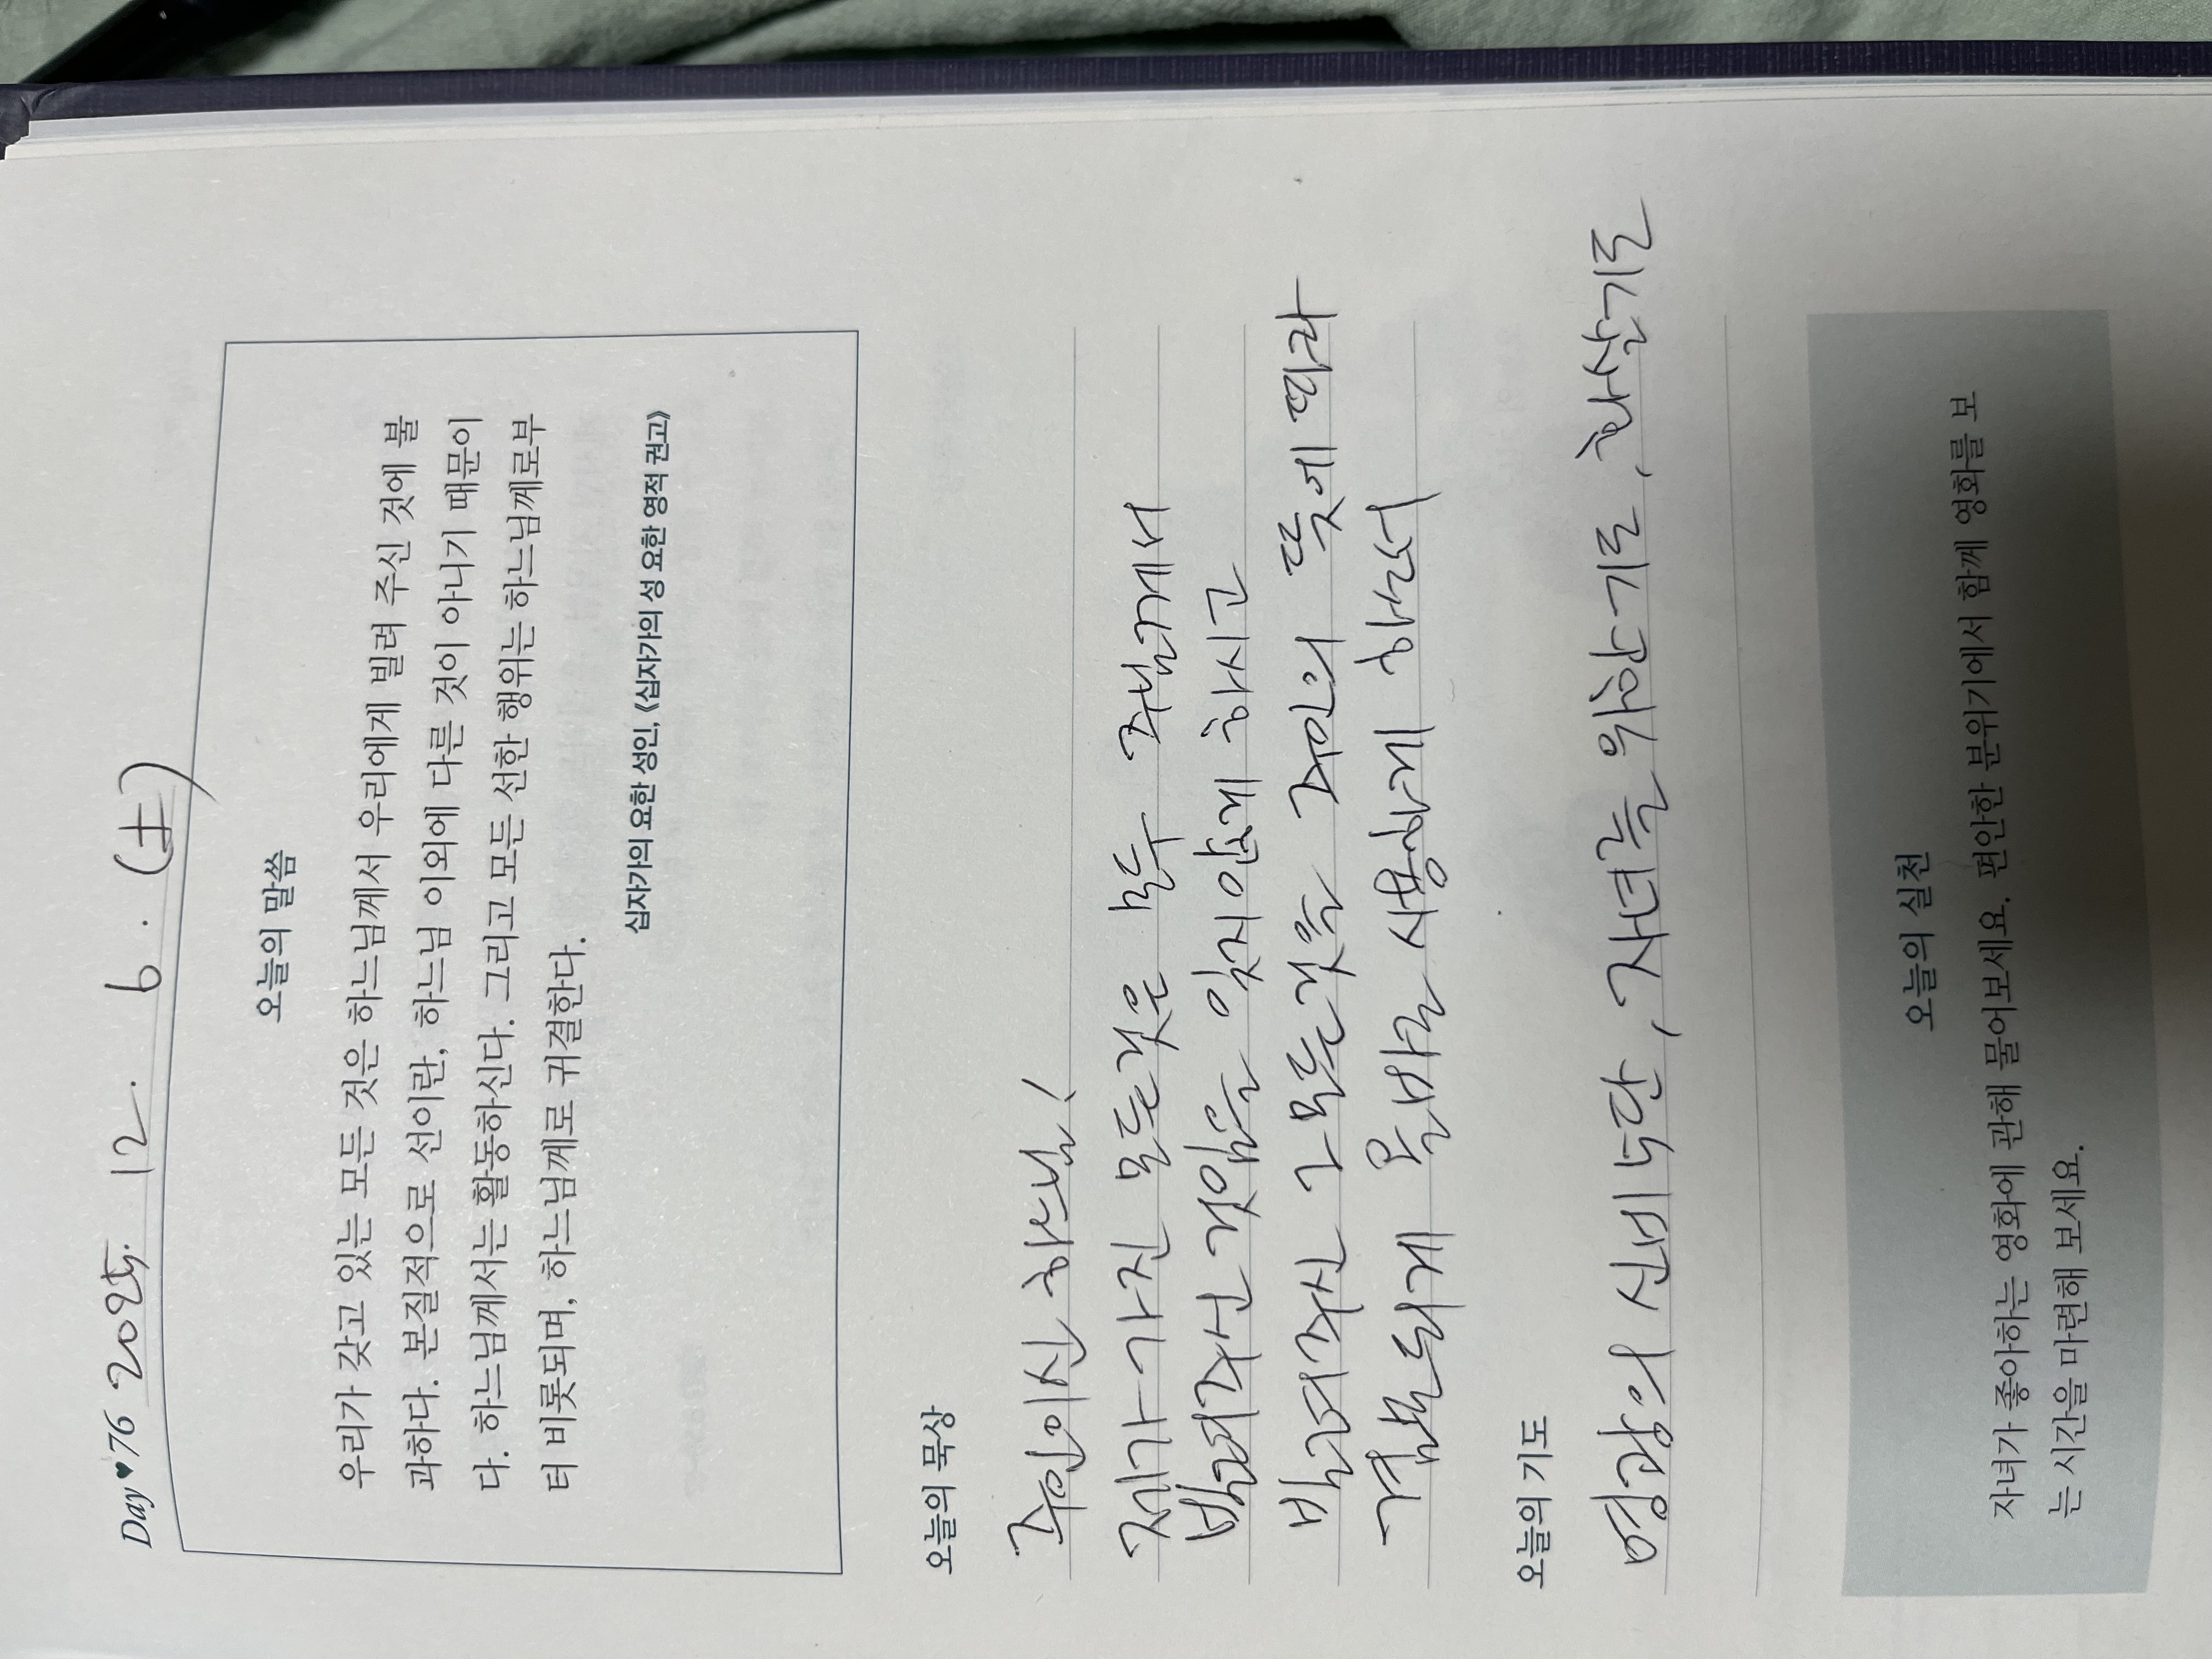 Day♥76 2025. 12. 6. (土)
오늘의 말씀
우리가 갖고 있는 모든 것은 하느님께서 우리에게 빌려 주신 것에 불
과하다. 본질적으로 선이란, 하느님 이외에 다른 것이 아니기 때문이
다. 하느님께서는 활동하신다. 그리고 모든 선한 행위는 하느님께로부
터 비롯되며, 하느님께로 귀결한다.
십자가의 요한 성인, 《십자가의 성 요한 영적 권고》
오늘의 묵상
주인이신 하느님!
제가 가진 모든것은 모두 주님께서
빌려주신 것임을 잊지않게 하시고
빌려주신 그 모든것을 주인의 뜻에 따라
겸손되게 올바로 사용하게 하소서
오늘의 기도
영광의 신비 5단, 자녀를 위한 기도, 화살기도
오늘의 실천
자녀가 좋아하는 영화에 관해 물어보세요. 편안한 분위기에서 함께 영화를 보
는 시간을 마련해 보세요.